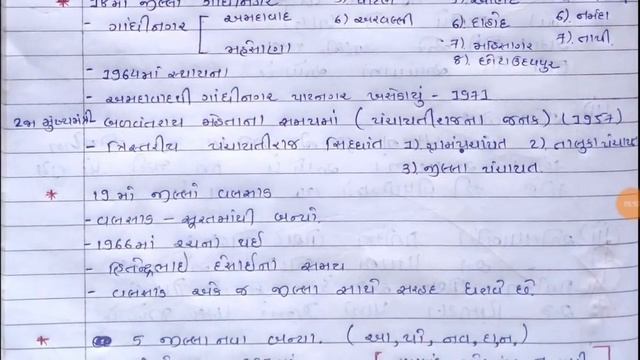 * 18 માં જીલ્લો ગાંધીનગર
- ગાંધીનગર [ અમદાવાદ 6) અરવલ્લી 6) દાહોદ 6) નર્મદા
મહેસાણા 7) મહિસાગર 7) તાપી
8) છોટાઉદયપુર
- 1964માં સ્થાપના
- અમદાવાદથી ગાંધીનગર પાટનગર ખસેડાયું - 1971
2જા મુખ્યમંત્રી - બળવંતરાય મહેતાના સમયમાં (પંચાયતીરાજના જનક) (1957)
- ત્રિસ્તરીય પંચાયતીરાજ સિદ્ધાંત 1) ગ્રામપંચાયત 2) તાલુકા પંચાયત
3) જીલ્લા પંચાયત.
* 19 માં જીલ્લો વલસાડ
- વલસાડ - સૂરતમાંથી બન્યો.
- 1966માં રચના થઈ
- હિતેન્દ્રભાઈ દેસાઈનાં સમય
- વલસાડ એક જ જીલ્લા સાથે સરહદ ધરાવે છે.
* 5 જીલ્લા નવા બન્યા. (આ, પો, નવ, દા, ન,)